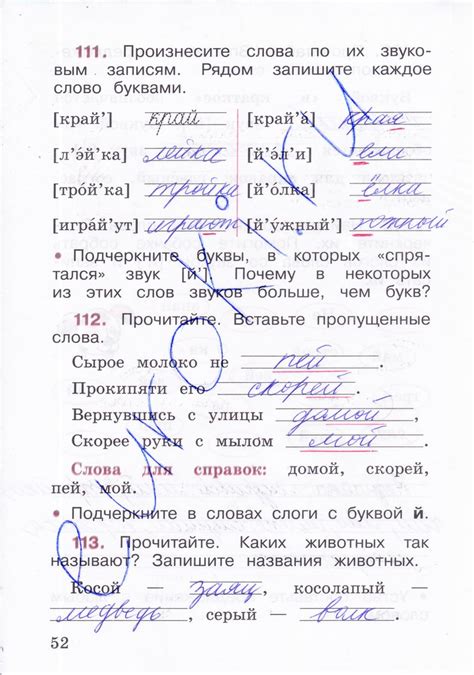 111. Произнесите слова по их звуко-
вым записям. Рядом запишите каждое
слово буквами.
[край'] край [край'а] края
[л'э́й'ка] лейка [й'э́л'и] ели
[тро́й'ка] тройка [й'о́лка] ёлка
[игра́й'ут] играют [й'у́жный'] южный
• Подчеркните буквы, в которых «спря-
тался» звук [й']. Почему в некоторых
из этих слов звуков больше, чем букв?
112. Прочитайте. Вставьте пропущенные
слова.
Сырое молоко не пей.
Прокипяти его скорей.
Вернувшись с улицы домой,
Скорее руки с мылом мой.
Слова для справок: домой, скорей,
пей, мой.
• Подчеркните в словах слоги с буквой й.
113. Прочитайте. Каких животных так
называют? Запишите названия животных.
Косой — заяц, косолапый —
медведь, серый — волк.
52